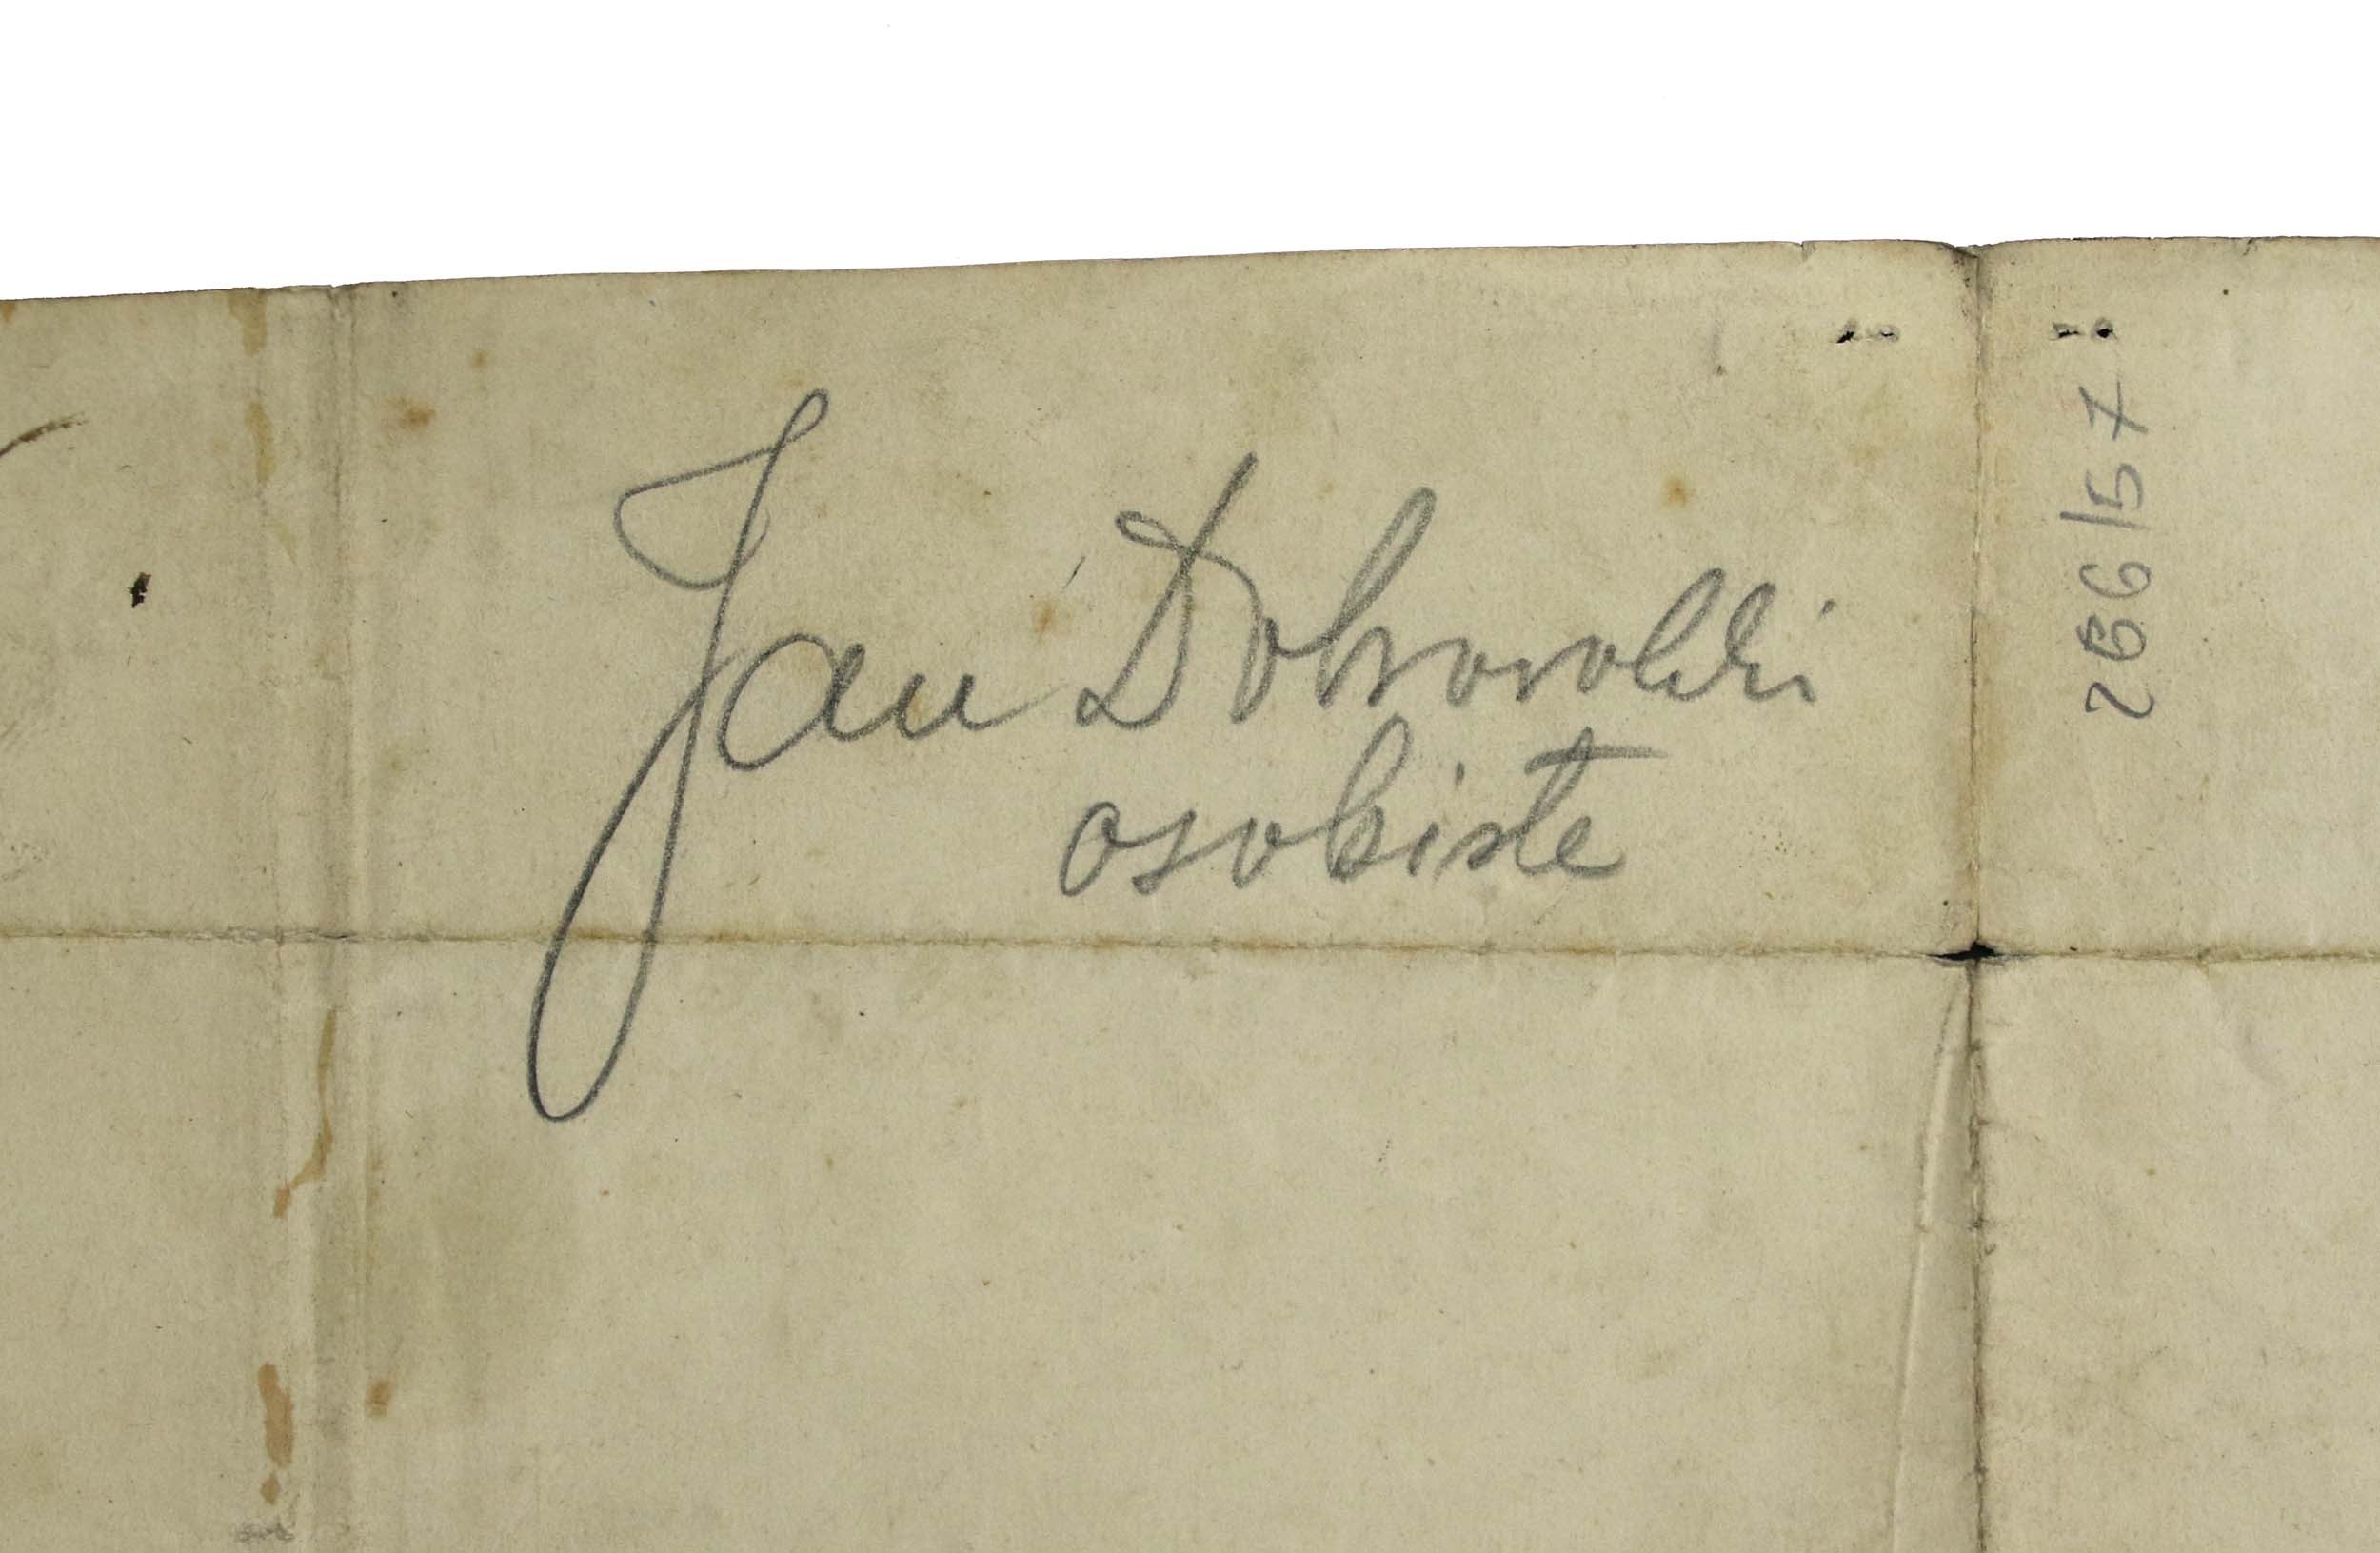 Jan Dobrowolski
osobiste
286/57